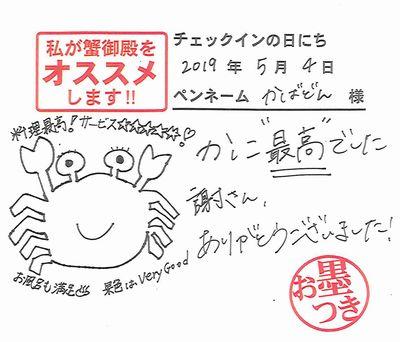 私が蟹御殿を
オススメ
します!!
チェックインの日にち
2019年 5月 4日
ペンネーム かしばどん 様
料理最高! サービス☆☆☆☆☆!
かに"最高"でした
謝さん、
ありがとうございました!
お風呂も満足♨ 景色はVery Good
お墨つき